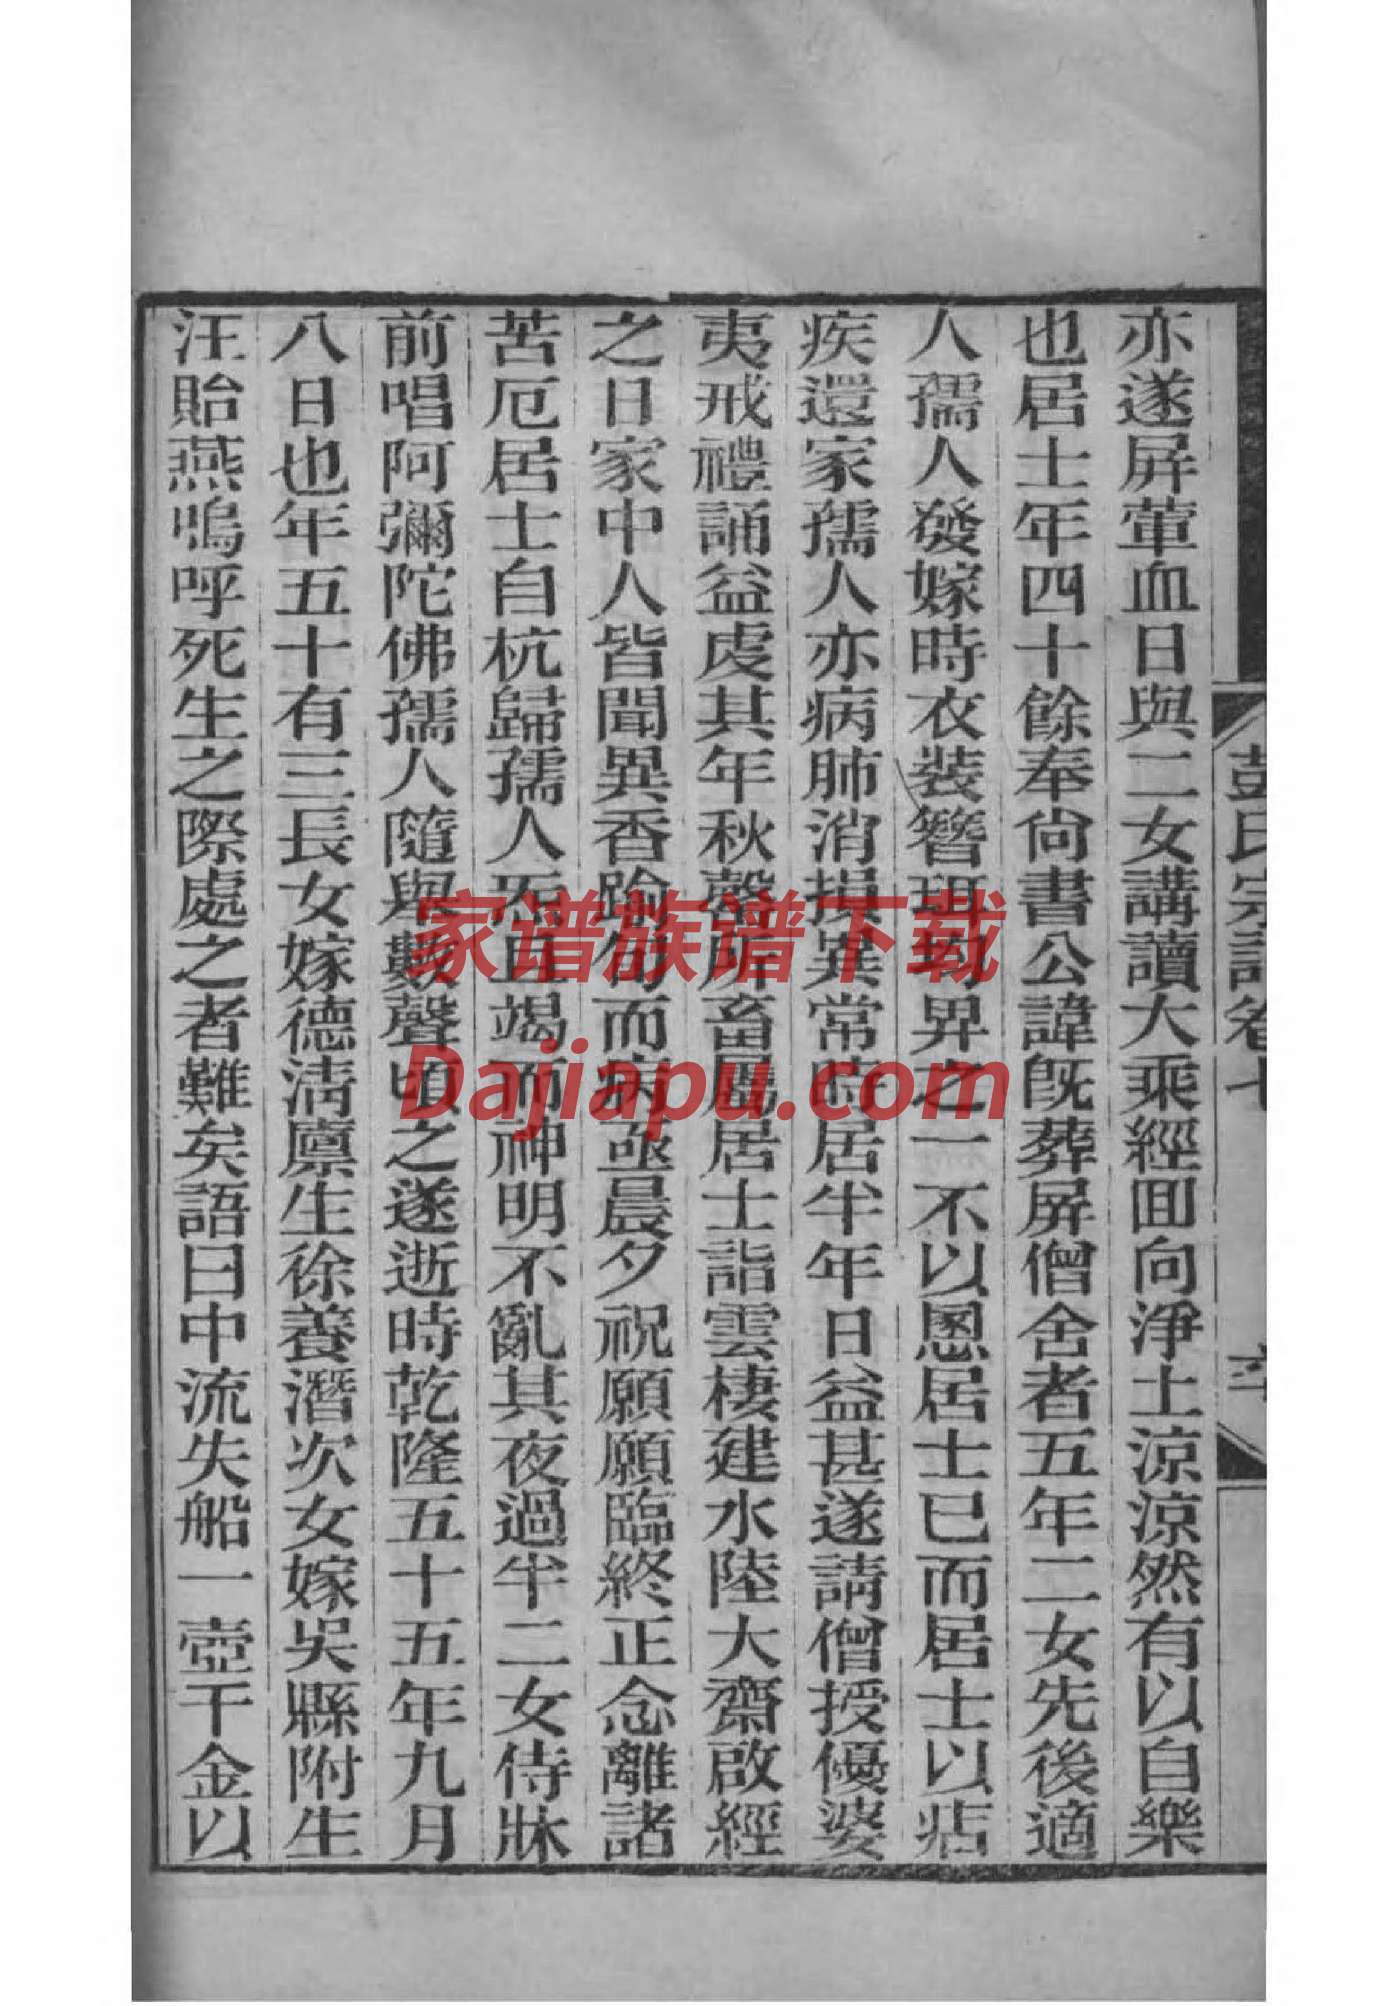 彭氏宗譜卷七
亦遂屏葷血日與二女講讀大乘經回向淨土涼涼然有以自樂
也居士年四十餘奉尙書公諱旣葬屏僧舍者五年二女先後適
人孺人發嫁時衣裝簪珥均畀之一不以慁居士已而居士以痁
疾還家孺人亦病肺消損異常時居半年日益甚遂請僧授優婆
夷戒禮誦益虔其年秋罄所畜屬居士詣雲棲建水陸大齋啟經
之日家中人皆聞異香踰旬而病亟晨夕祝願願臨終正念離諸
苦厄居士自杭歸孺人氣血竭而神明不亂其夜過半二女侍牀
前唱阿彌陀佛孺人隨與數聲頃之遂逝時乾隆五十五年九月
八日也年五十有三長女嫁德淸廪生徐養潛次女嫁吳縣附生
汪貽燕嗚呼死生之際處之者難矣語曰中流失船一壺千金以
家谱族谱下载
Dajiapu.com